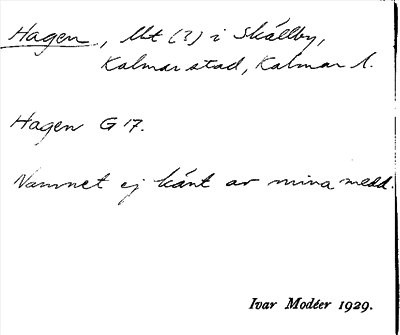 Hagen, Utt (?) i Skälby,
Kalmar stad, Kalmar l.
Hagen G 17.
Namnet ej känt av mina medd.
Ivar Modéer 1929.